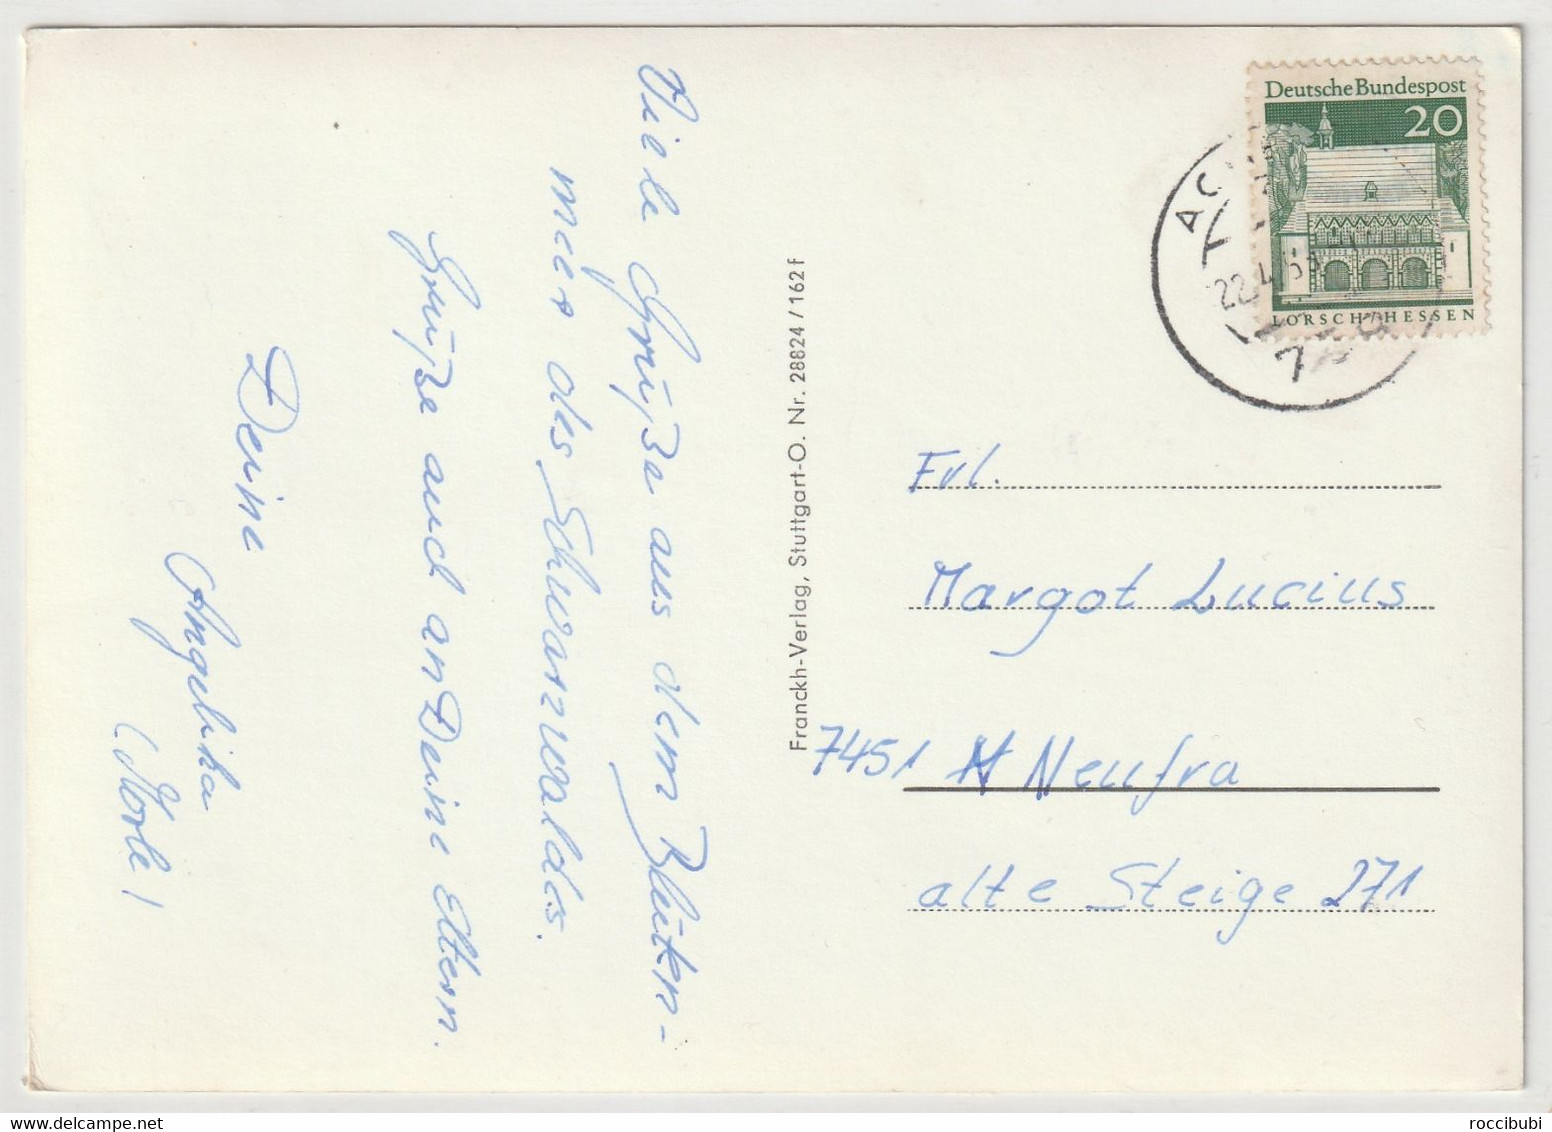 Viele Grüße aus dem Blüten-
meer des Schwarzwaldes.
Grüße auch an Deine Eltern.
Deine
Angelika
Franckh-Verlag, Stuttgart-O. Nr. 28824 / 162 f
Deutsche Bundespost
20
LORSCH/HESSEN
22.4.69
Frl.
Margot Lucius
7451 Neufra
alte Steige 271
roccibubi